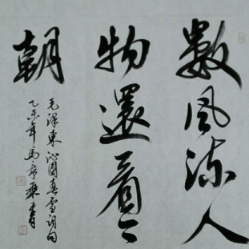 數風流人
物還看今
朝
毛澤東沁園春雪詞句
乙未年馬
書